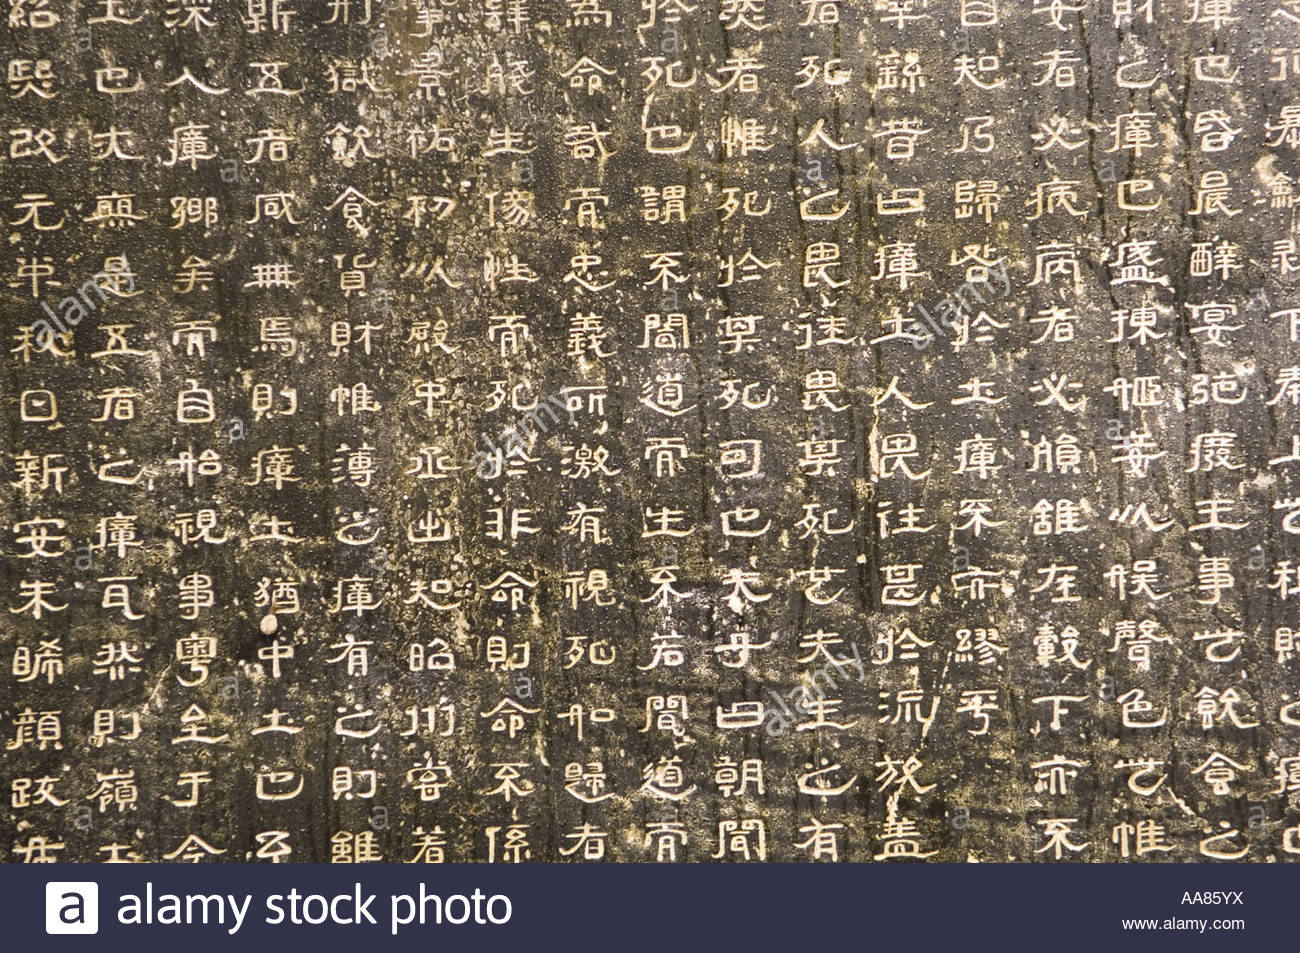 征暴斂剥下奉上此租賦之瘴也
瘴也昏晨醉宴弛廢王事此飲食之
財之瘴也盛揀姬妾以娱聲色此惟
安者必病病者必殞雖在轂下亦不
自知乃歸咎於土瘴不亦繆乎
繇昔曰瘴土人畏往甚於流放盖
者死人之畏往畏其死也夫生之有
者惟死於其死可也太母曰朝聞
於死也謂不聞道而生不若聞道而
為命哉而忠義所激有視死如歸者
賤生傷性而死於非命則命不係
摯景祐初以殿中丞出知昭州嘗著
刑獄飲食貨財惟薄之瘴有之則雖
斯五者咸無焉則瘴土猶中土也至
土也大興是五者之瘴瓦然則嶺土
深入瘴鄉矣而自始視事粵至于今
紹熙改元中秋日新安朱晞顔跋并
alamy stock photo
AA85YX
www.alamy.com